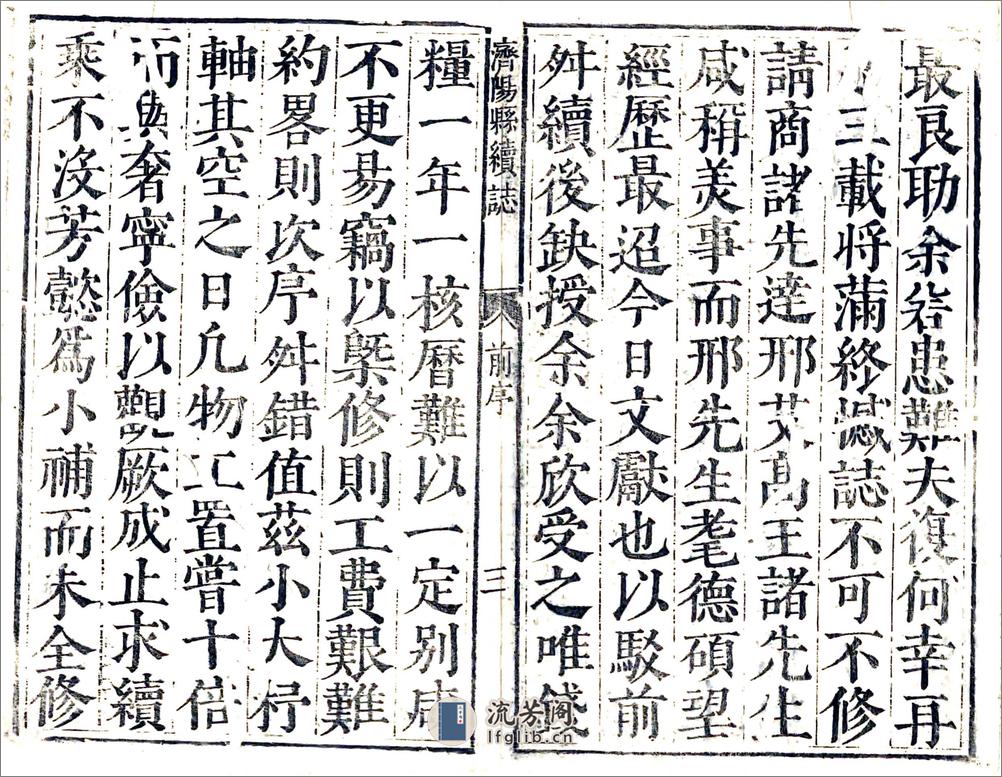 最良助余若患難夫復何幸再
三載將滿終憾誌不可不修
請商諸先達邢艾高王諸先生
咸稱美事而邢先生耄德碩望
經歷最迢今日文獻也以駁前
舛續後缺授余余欣受之唯錢
濟陽縣續誌 前序 三
糧一年一核曆難以一定别處
不更易竊以槩修則工費艱難
約畧則次序舛錯值茲小大杼
軸其空之日凢物工置嘗十倍
而與奢寧儉以觀厥成止求續
乘不沒芳懿爲小補而未全修
流芳阁
lfglib.cn